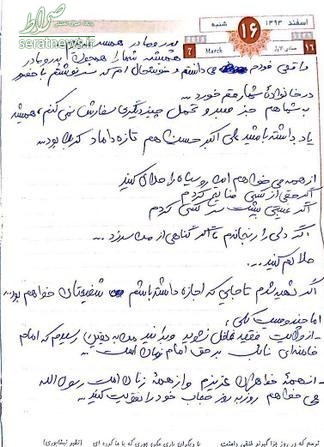 صراط
seratnews.ir
اسفند ۱۳۹۳
شنبه
۱۶
March
7
پدر و مادر همسرم
همیشه شما را همچون پدر و مادر
واقعی خودم می داشتم و خوشحال ام که سر نوشتم با حضور
در خانواده شما رقم خورد
به شما هم جز صبر و تحمل چیز دیگری سفارش نمی کنم، همیشه
یاد داشته باشید علی اکبر حسین هم تازه داماد کربلا بود
از همه می خواهم این رو سیاه را حلال کنید
اگر حقی از کسی ضایع کردم
اگر غیبتی پشت سر کسی کردم
اگر دلی را رنجاندم تا آخر گناهی از من سر زد
حلالم کنید...
اگر شهید شدم تا جایی که اجازه داشته باشم شفیعتان خواهم بود
اما چند وصیت کلی:
- از ولایت فقیه غافل نشوید و بدانید من به یقین رسیدم که امام
خامنه ای نائب بر حق امام زمان است
- از همه خواهران عزیزم و از همه زنان امت رسول الله
می خواهم روز به روز حجاب خود را تقویت کنید